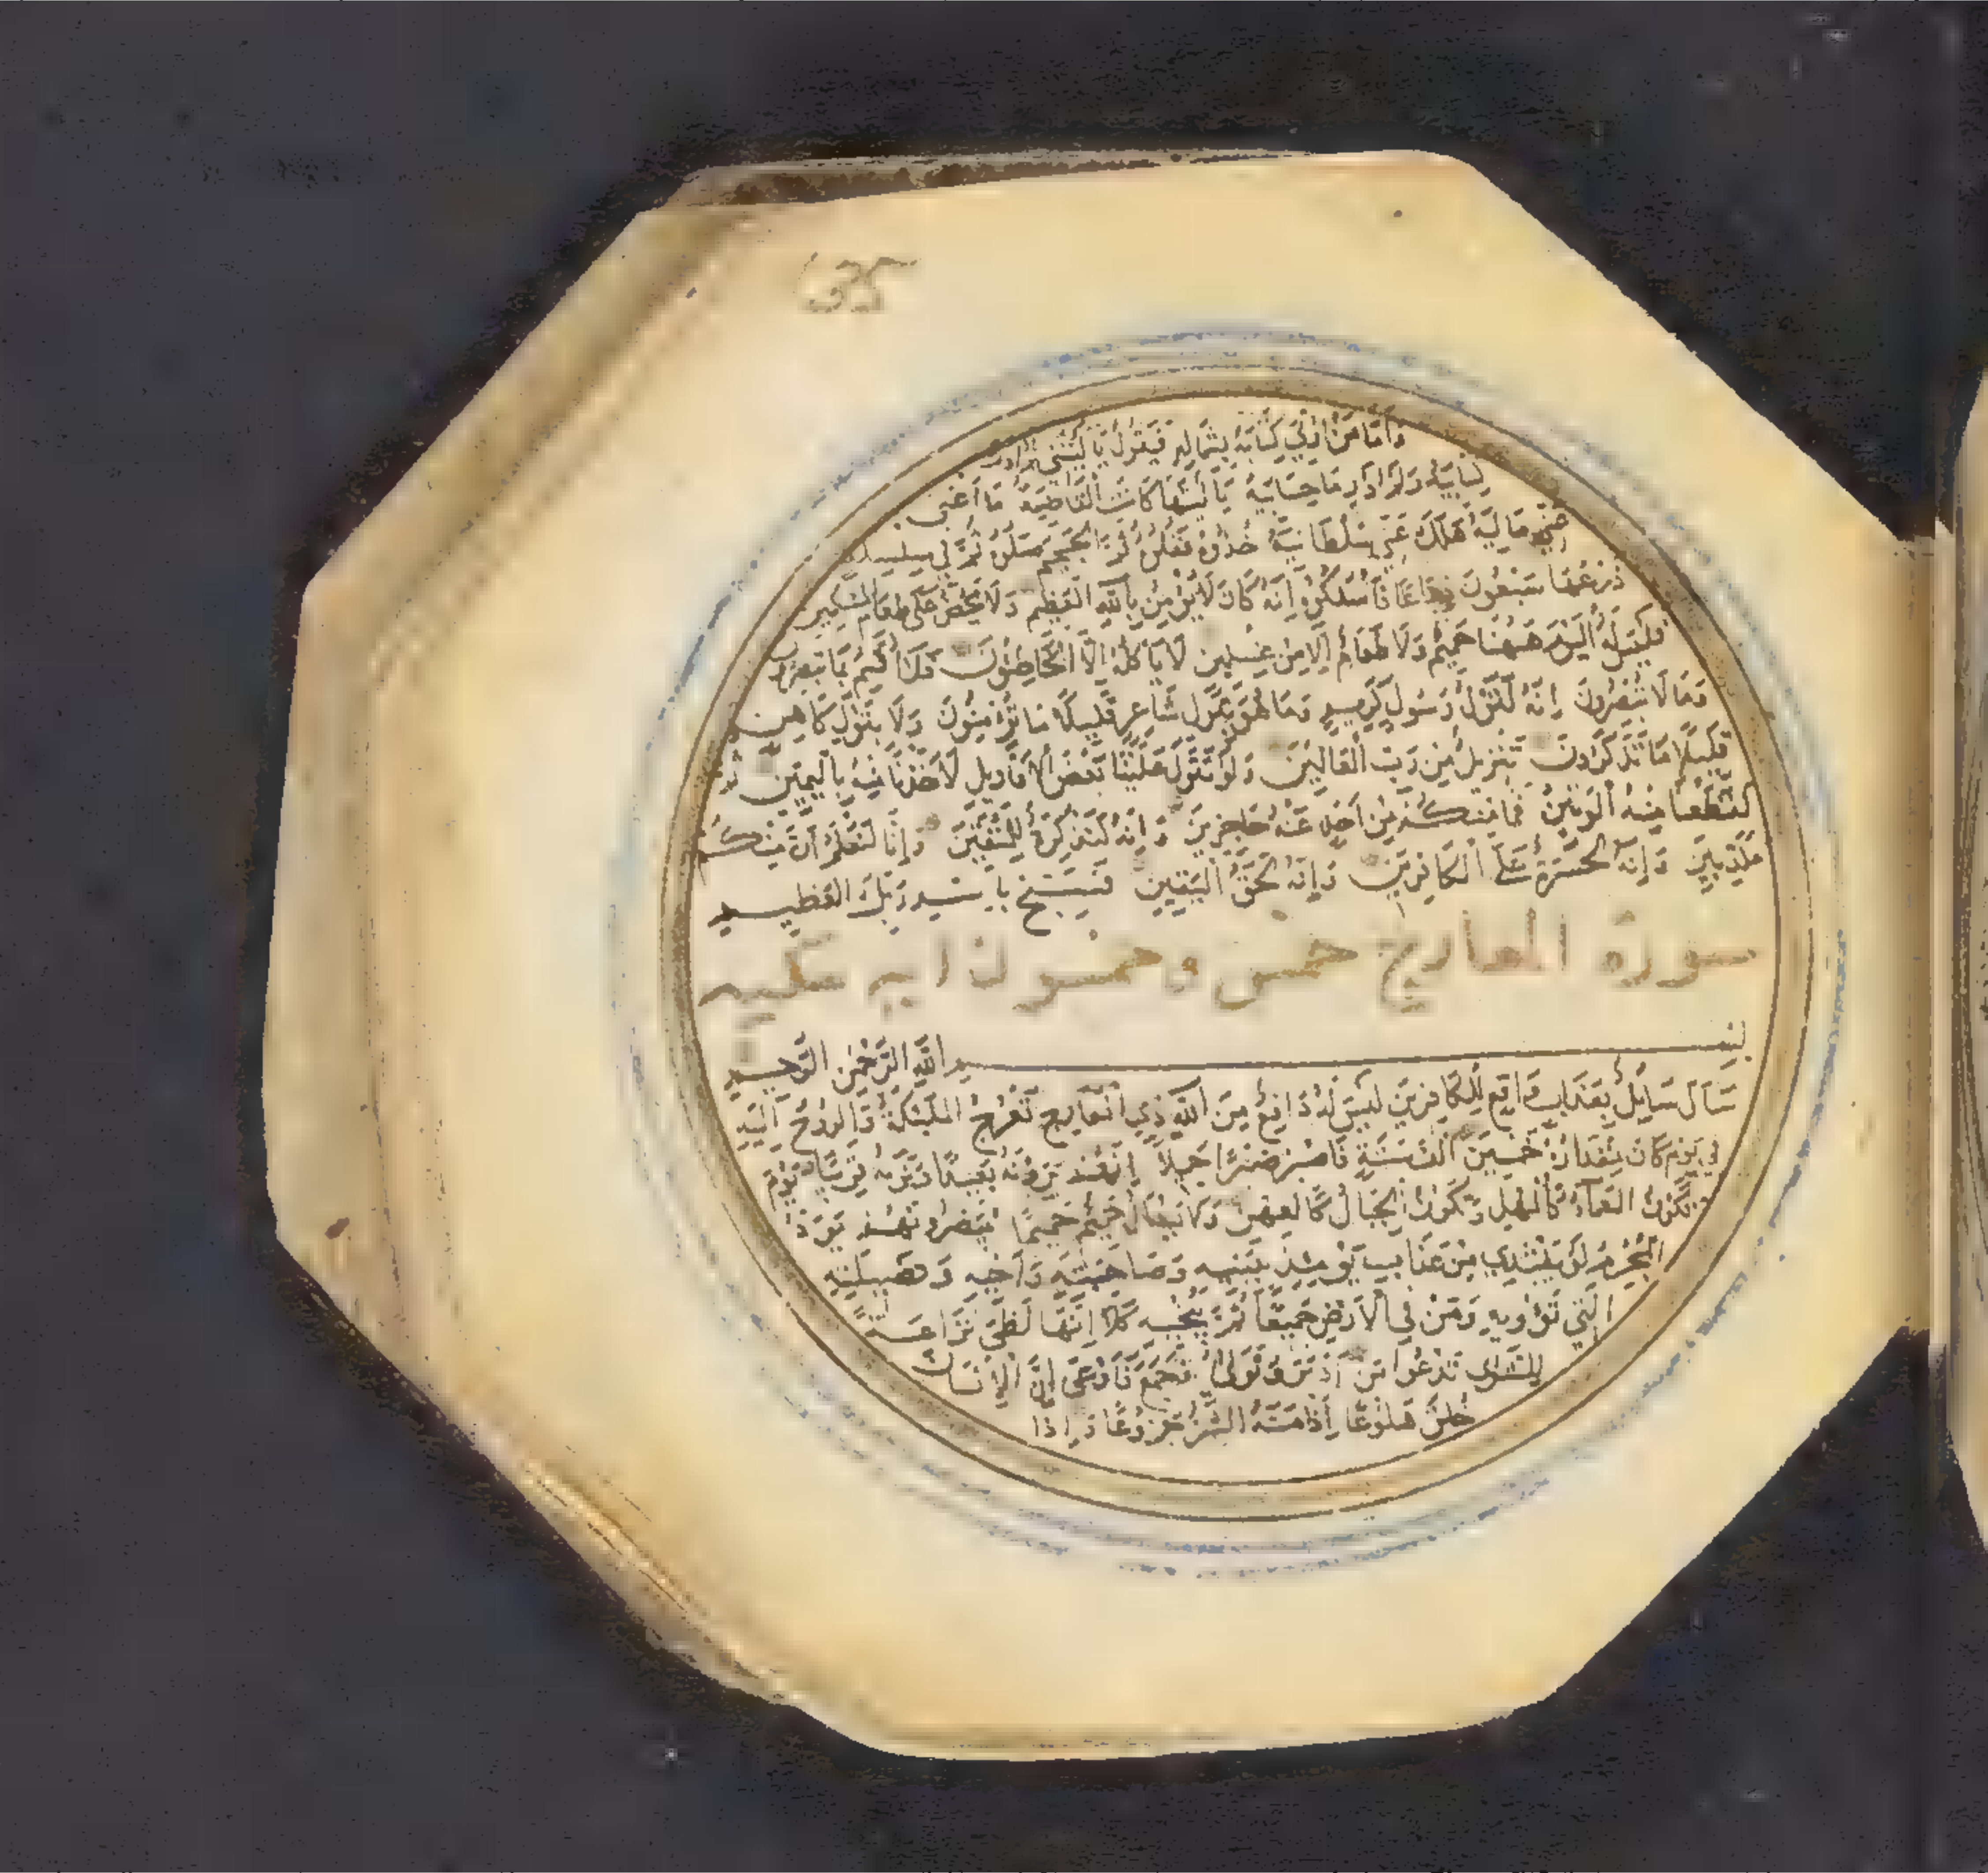 635
وَأَمَّا مَنْ أُوتِيَ كِتَابَهُ بِشِمَالِهِ فَيَقُولُ يَا لَيْتَنِي لَمْ أُوتَ
كِتَابِيَهْ وَلَمْ أَدْرِ مَا حِسَابِيَهْ يَا لَيْتَهَا كَانَتِ الْقَاضِيَةَ مَا أَغْنَى
عَنِّي مَالِيَهْ هَلَكَ عَنِّي سُلْطَانِيَهْ خُذُوهُ فَغُلُّوهُ ثُمَّ الْجَحِيمَ صَلُّوهُ ثُمَّ فِي سِلْسِلَةٍ
ذَرْعُهَا سَبْعُونَ ذِرَاعًا فَاسْلُكُوهُ إِنَّهُ كَانَ لَا يُؤْمِنُ بِاللَّهِ الْعَظِيمِ وَلَا يَحُضُّ عَلَى طَعَامِ الْمِسْكِينِ
فَلَيْسَ لَهُ الْيَوْمَ هَهُنَا حَمِيمٌ وَلَا طَعَامٌ إِلَّا مِنْ غِسْلِينٍ لَا يَأْكُلُهُ إِلَّا الْخَاطِئُونَ فَلَا أُقْسِمُ بِمَا تُبْصِرُونَ
وَمَا لَا تُبْصِرُونَ إِنَّهُ لَقَوْلُ رَسُولٍ كَرِيمٍ وَمَا هُوَ بِقَوْلِ شَاعِرٍ قَلِيلًا مَا تُؤْمِنُونَ وَلَا بِقَوْلِ كَاهِنٍ
قَلِيلًا مَا تَذَكَّرُونَ تَنْزِيلٌ مِنْ رَبِّ الْعَالَمِينَ وَلَوْ تَقَوَّلَ عَلَيْنَا بَعْضَ الْأَقَاوِيلِ لَأَخَذْنَا مِنْهُ بِالْيَمِينِ ثُمَّ
لَقَطَعْنَا مِنْهُ الْوَتِينَ فَمَا مِنْكُمْ مِنْ أَحَدٍ عَنْهُ حَاجِزِينَ وَإِنَّهُ لَتَذْكِرَةٌ لِلْمُتَّقِينَ وَإِنَّا لَنَعْلَمُ أَنَّ مِنْكُمْ
مُكَذِّبِينَ وَإِنَّهُ لَحَسْرَةٌ عَلَى الْكَافِرِينَ وَإِنَّهُ لَحَقُّ الْيَقِينِ فَسَبِّحْ بِاسْمِ رَبِّكَ الْعَظِيمِ
سورة المعارج خمس وخمسون اية مكية
بِسْمِ اللَّهِ الرَّحْمَنِ الرَّحِيمِ
سَأَلَ سَائِلٌ بِعَذَابٍ وَاقِعٍ لِلْكَافِرِينَ لَيْسَ لَهُ دَافِعٌ مِنَ اللَّهِ ذِي الْمَعَارِجِ تَعْرُجُ الْمَلَئِكَةُ وَالرُّوحُ إِلَيْهِ
فِي يَوْمٍ كَانَ مِقْدَارُهُ خَمْسِينَ أَلْفَ سَنَةٍ فَاصْبِرْ صَبْرًا جَمِيلًا إِنَّهُمْ يَرَوْنَهُ بَعِيدًا وَنَرَاهُ قَرِيبًا يَوْمَ
تَكُونُ السَّمَاءُ كَالْمُهْلِ وَتَكُونُ الْجِبَالُ كَالْعِهْنِ وَلَا يَسْأَلُ حَمِيمٌ حَمِيمًا يُبَصَّرُونَهُمْ يَوَدُّ
الْمُجْرِمُ لَوْ يَفْتَدِي مِنْ عَذَابِ يَوْمِئِذٍ بِبَنِيهِ وَصَاحِبَتِهِ وَأَخِيهِ وَفَصِيلَتِهِ
الَّتِي تُؤْوِيهِ وَمَنْ فِي الْأَرْضِ جَمِيعًا ثُمَّ يُنْجِيهِ كَلَّا إِنَّهَا لَظَى نَزَّاعَةً
لِلشَّوَى تَدْعُوا مَنْ أَدْبَرَ وَتَوَلَّى وَجَمَعَ فَأَوْعَى إِنَّ الْإِنْسَانَ
خُلِقَ هَلُوعًا إِذَا مَسَّهُ الشَّرُّ جَزُوعًا وَإِذَا